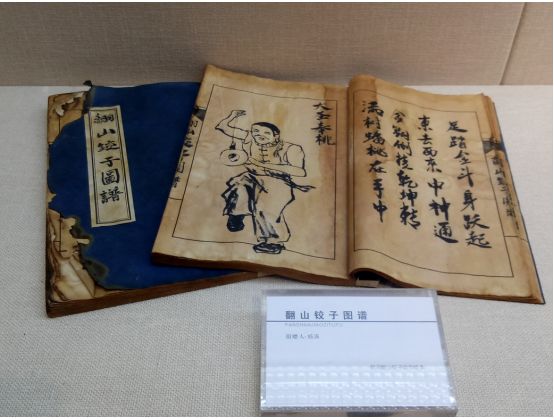 翻山铰子圖譜
大圣奉桃
足踏全斗身跃起
东去西来中神通
翻倒挂乾坤转
满树蟠桃在手中
翻山铰子图谱
FANSHANJIAOZITUPU